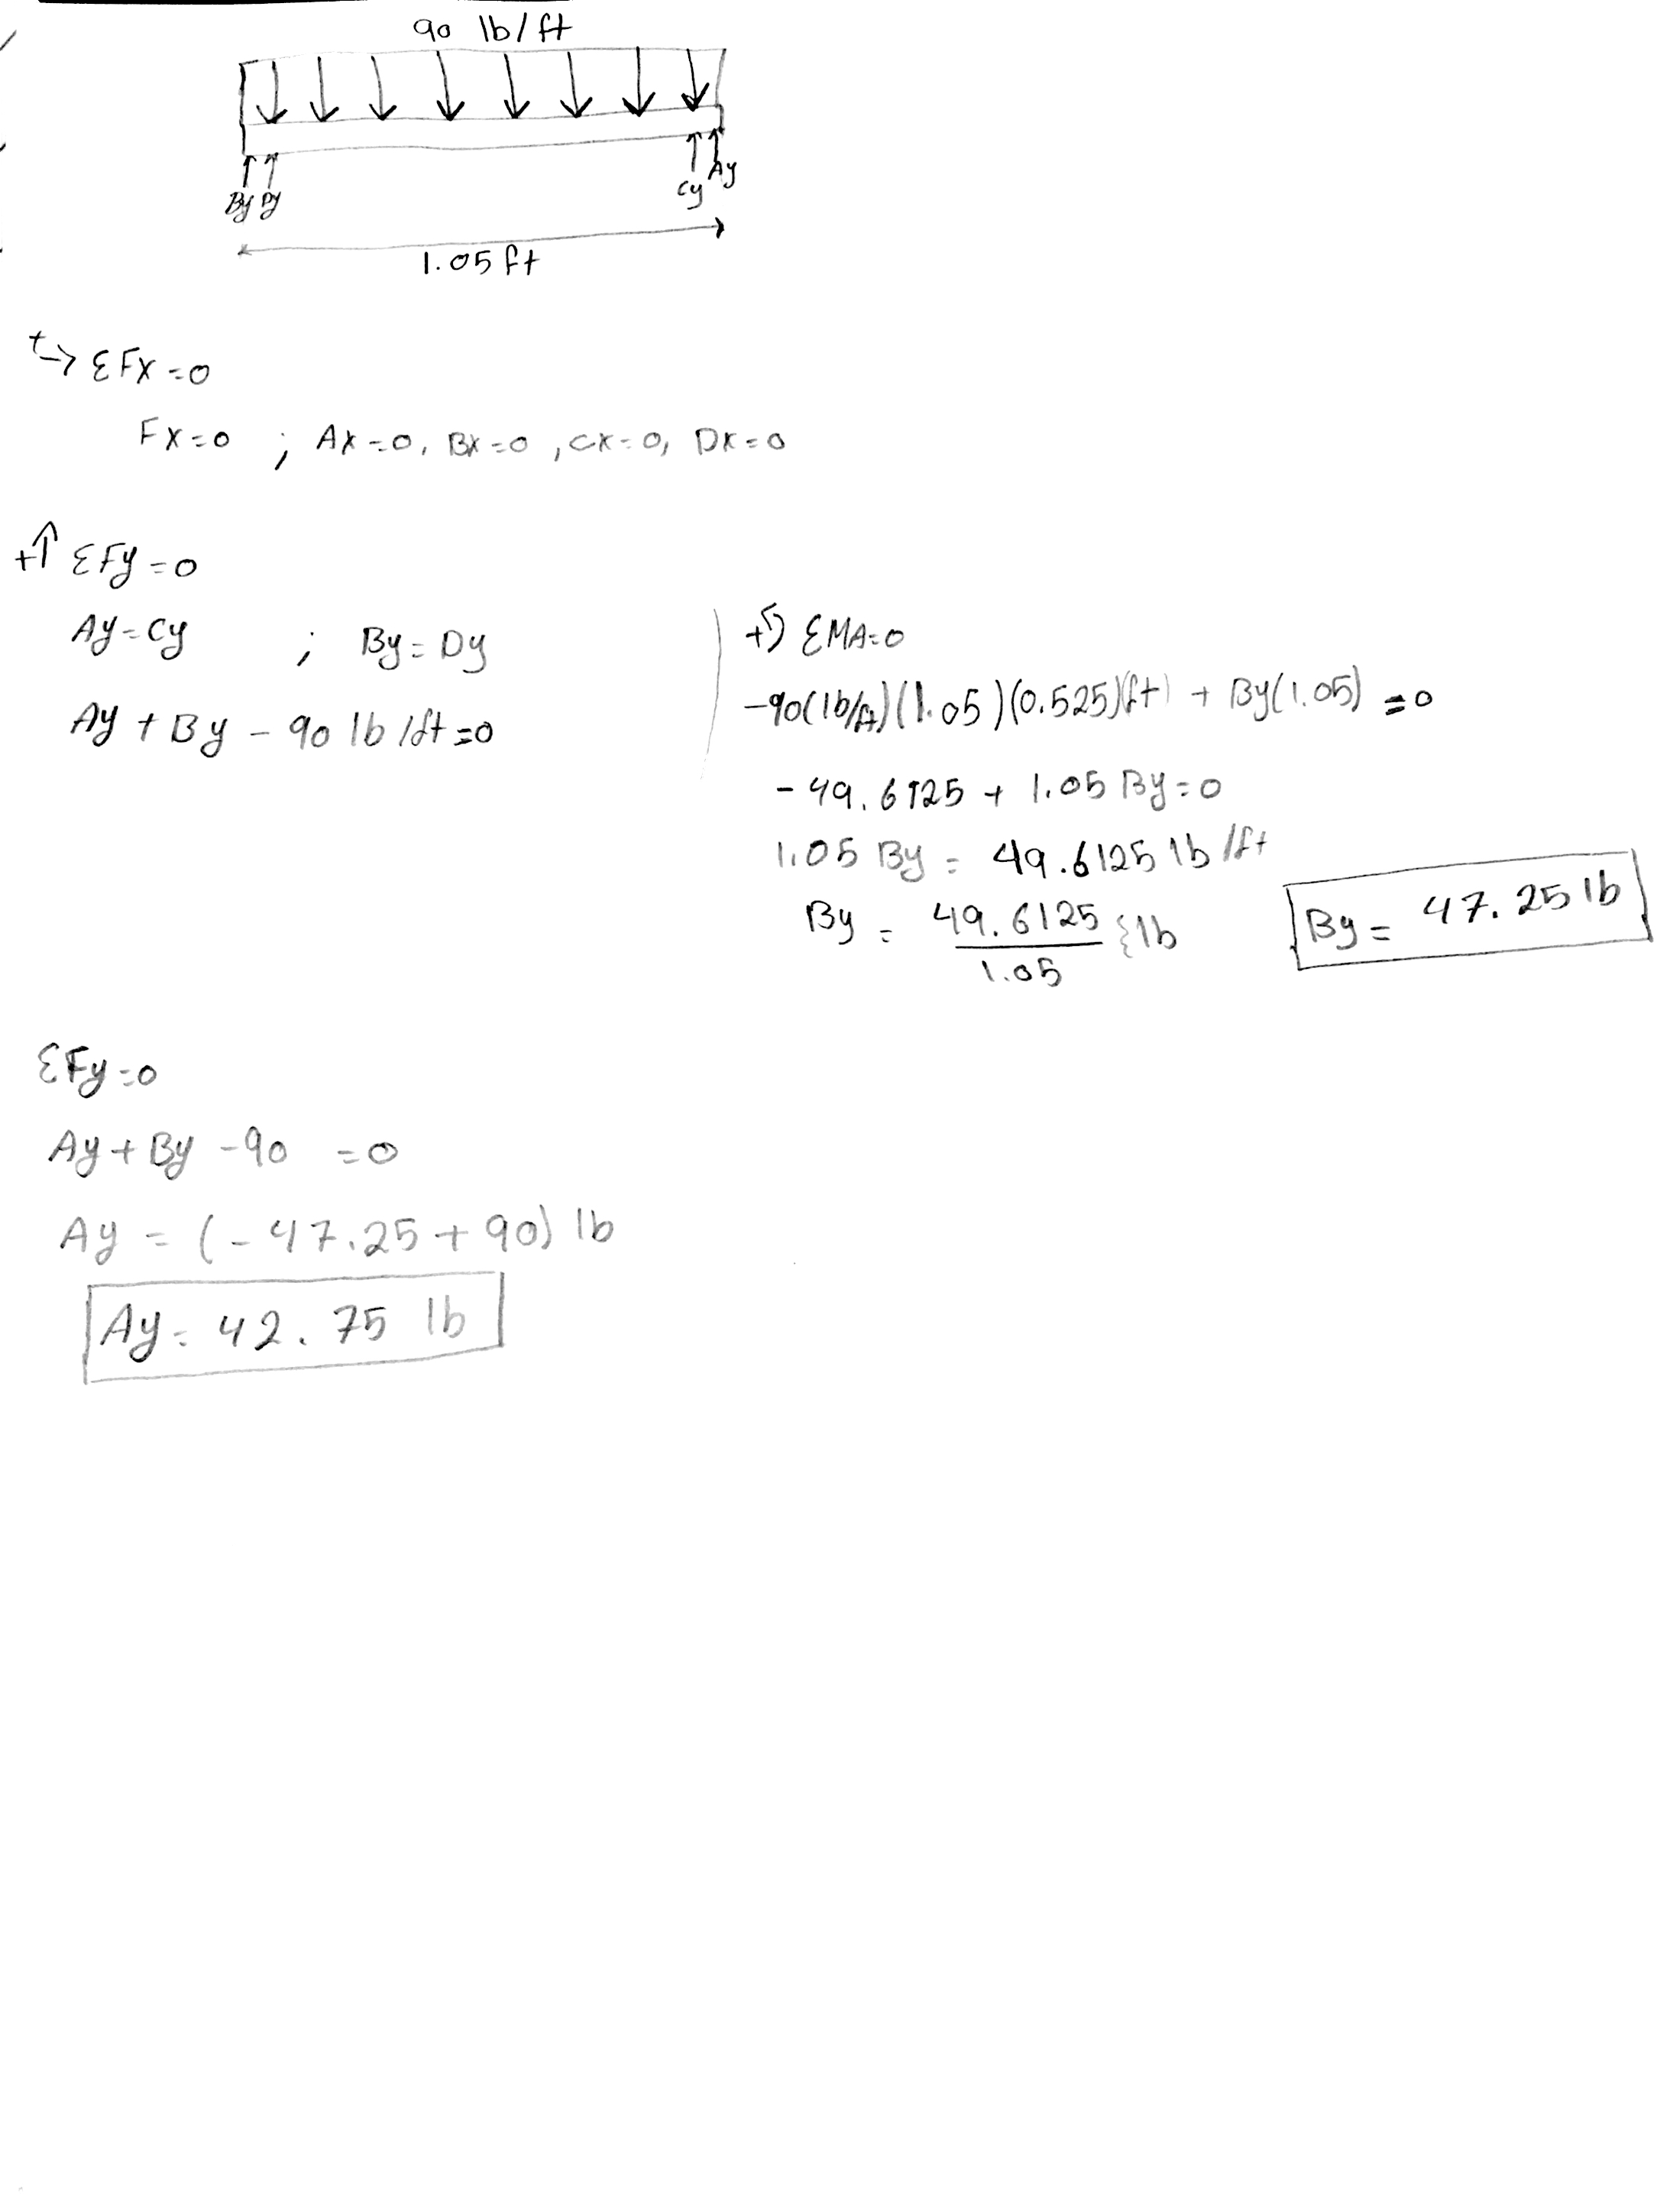 90 lb/ft
By Dy
Cy Ay
1.05 ft
+→ ΣFx=0
Fx=0 ; Ax=0, Bx=0, Cx=0, Dx=0
+↑ ΣFy=0
Ay=Cy ; By=Dy
Ay + By - 90 lb/ft=0
+↺ ΣMA=0
-90(lb/ft)(1.05)(0.525)(ft) + By(1.05) =0
-49.6125 + 1.05 By=0
1.05 By = 49.6125 lb/ft
By = 49.6125/1.05 } lb
By = 47.25 lb
ΣFy=0
Ay + By -90 =0
Ay = (-47.25+90) lb
Ay = 42.75 lb